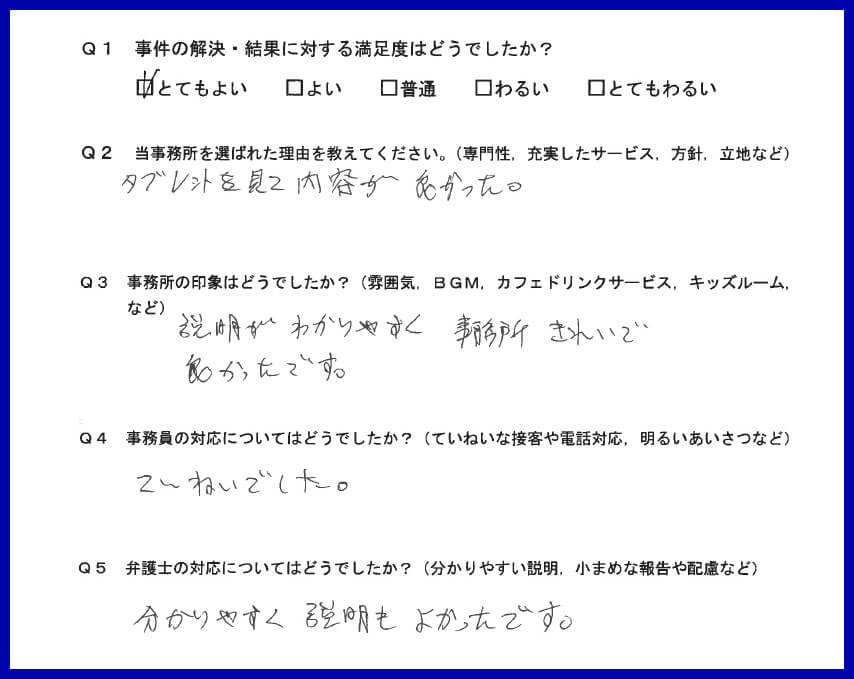 Ｑ１　事件の解決・結果に対する満足度はどうでしたか？
☑とてもよい　□よい　□普通　□わるい　□とてもわるい
Ｑ２　当事務所を選ばれた理由を教えてください。（専門性，充実したサービス，方針，立地など）
タブレットを見て内容が良かった。
Ｑ３　事務所の印象はどうでしたか？（雰囲気，ＢＧＭ，カフェドリンクサービス，キッズルーム，
など）
説明がわかりやすく　事務所きれいで
良かったです。
Ｑ４　事務員の対応についてはどうでしたか？（ていねいな接客や電話対応，明るいあいさつなど）
ていねいでした。
Ｑ５　弁護士の対応についてはどうでしたか？（分かりやすい説明，小まめな報告や配慮など）
分かりやすく説明もよかったです。